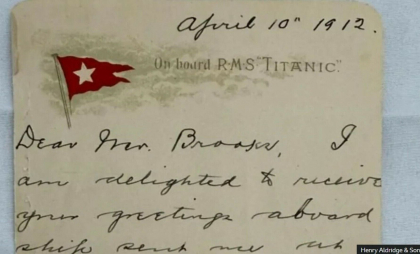 April 10" 1912.
On board RMS "TITANIC."
Dear Mr. Brooks, I
am delighted to receive
your greetings aboard
ship sent me at
Henry Aldridge & Son